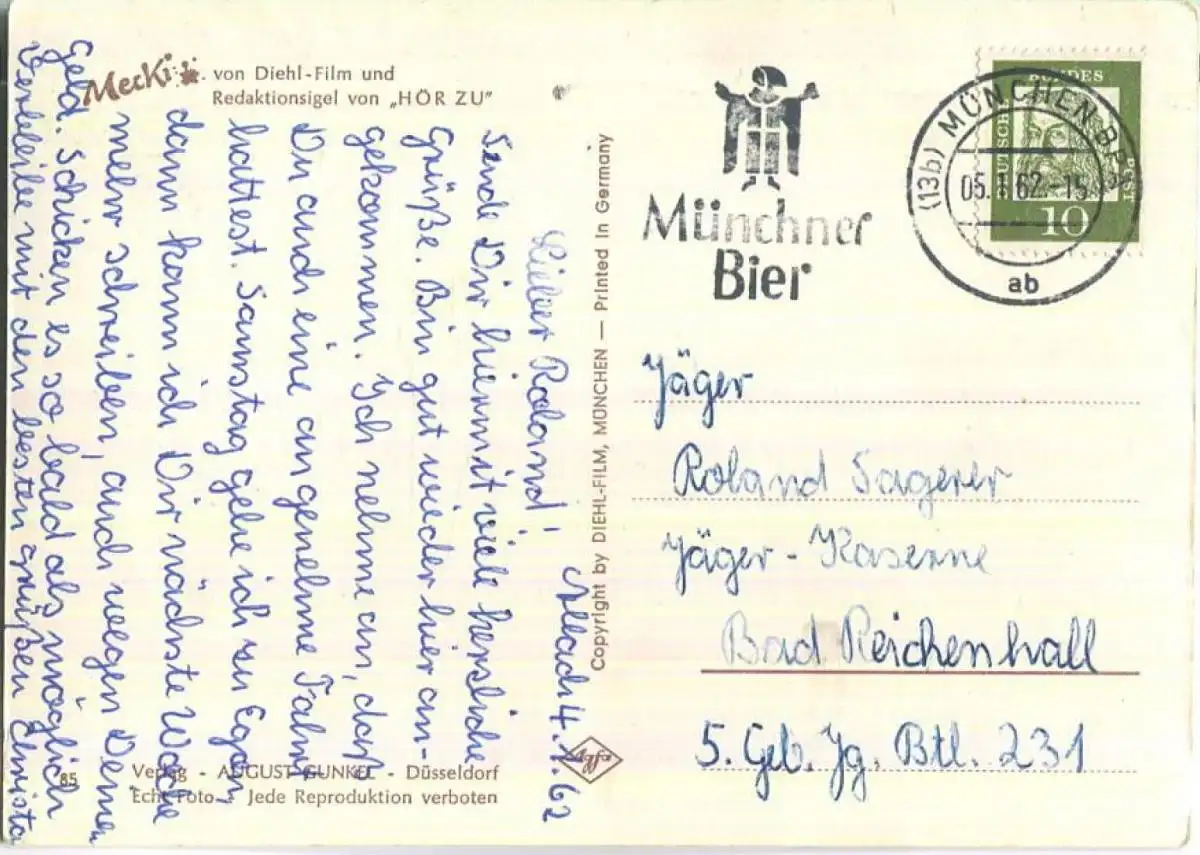 Mecki . . . von Diehl-Film und
Redaktionsigel von „HÖR ZU"
Allach 4.1.62
Lieber Roland!
Sende Dir hiermit viele herzliche
Grüße. Bin gut wieder hier an-
gekommen. Ich nehme an, daß
Du auch eine angenehme Fahrt
hattest. Samstag gehe ich zu Egon,
dann kann ich Dir nächste Woche
mehr schreiben, auch wegen Deinem
Geld. Schicken es so bald als möglich
Verbleibe mit den besten Grüßen Christa
85
Verlag - AUGUST GUNKEL - Düsseldorf
Echt Foto - Jede Reproduktion verboten
Copyright by DIEHL-FILM, MÜNCHEN — Printed in Germany
Agfa
Münchner
Bier
(13b) MÜNCHEN BP
05.1.62.-15
ab
DEUTSCHE
BUNDES
POST
10
Jäger
Roland Sagerer
Jäger-Kaserne
Bad Reichenhall
5. Geb. Jg. Btl. 231